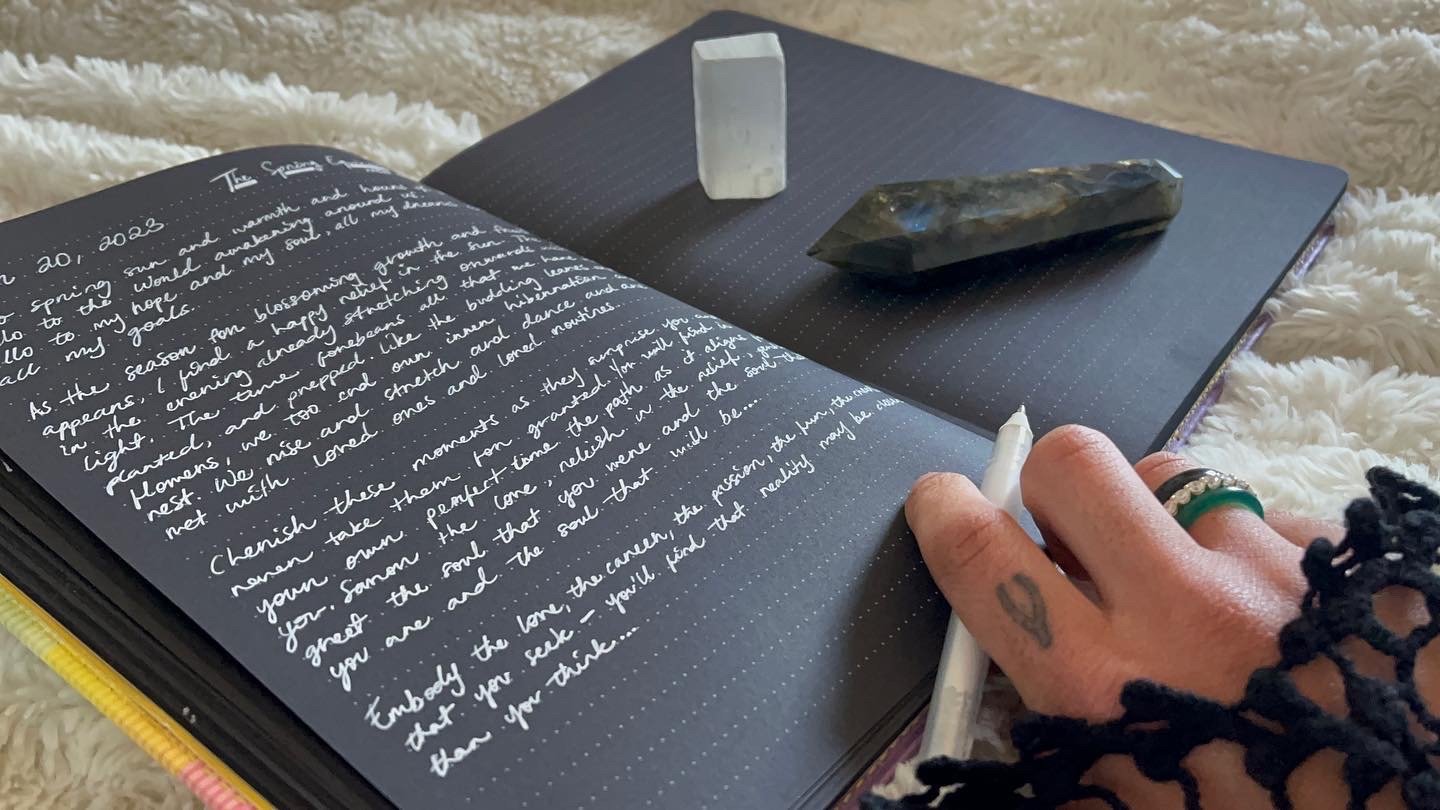 The Spring
20, 2023
spring sun and warmth and
to the world awakening around us
to my hope and my soul, all my dreams
all my goals.
As the season for blossoming growth and
appears, I find a happy relief in the sun.
in the evening already stretching onwards
light. The time forebears all that we have
planted, and prepped. Like the budding leaves
Homens, we too end our inner hibernation
nest. We rise and stretch and dance and
met with loved ones and loved routines.
Cherish these moments as they surprise you
never take them for granted. You will find
your own perfect time the path as it aligns
you. Savor the love, relish in the relief,
greet the soul that you were and the soul that
you are and the soul that will be...
Embody the love, the career, the passion, the fun, the
that you seek - you'll find that reality may be
than you think...